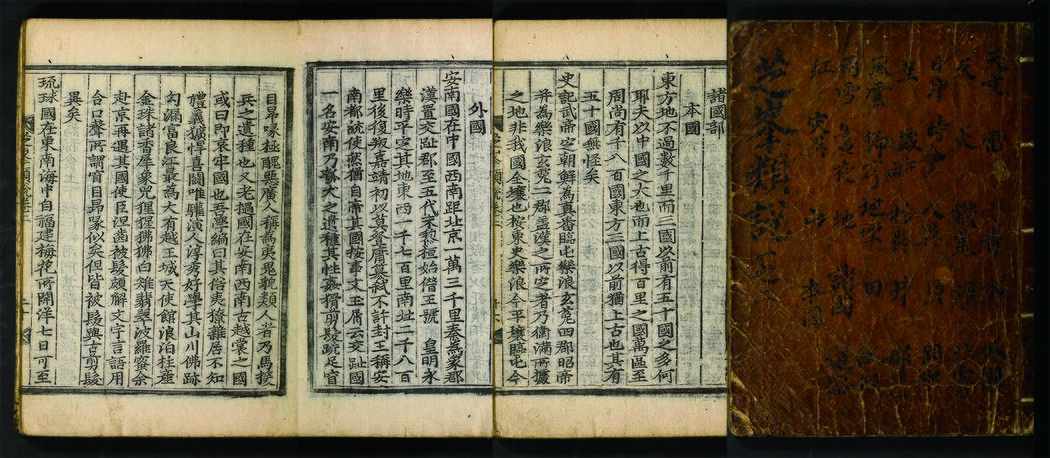 芝峯類說
諸國部
本國
東方地不過數千里而三國以前有五十國之多何
耶夫以中國之大也而上古得百里之國萬區至
周尚有千八百國東方三國以前猶上古也其有
五十國無怪矣
史記武帝定朝鮮爲眞番臨屯樂浪玄菟四郡昭帝
并爲樂浪玄菟二郡盖漢之所定者乃衛滿所據
之地非我國全壤也按東史樂浪今平壤臨屯今
外國
安南國在中國西南距北京一萬三千里秦爲象郡
漢置交趾郡至五代末黎桓始僭王號 皇明永
樂時平定其地東西一千七百里南北二千八百
里後復叛嘉靖初以莫登庸簒弑不許封王稱安
南都統使然猶自帝其國按事文玉屑云交趾國
一名安南乃槃瓠之遺種其性姦猾剪髮跣足窅
目昂喙極醜惡廣人稱爲夷鬼貌類人者乃馬援
兵之遺種也又老撾國在安南西南古越裳之國
或曰卽哀牢國也吾學編曰其俗夷獠雜居不知
禮義獷悍喜鬪唯驩演人淳秀好學其山川佛跡
勾漏富良江最爲大有越王城天使館浪泊柱產
金珠諸香犀象兕猩猩狒狒白雉翡翠波羅蜜余
赴京再遇其國使臣涅齒被髮頗解文字言語用
合口聲所謂窅目昂喙似矣但皆被髮與古剪髮
異矣
琉球國在東南海中自福建梅花所開洋七日可至